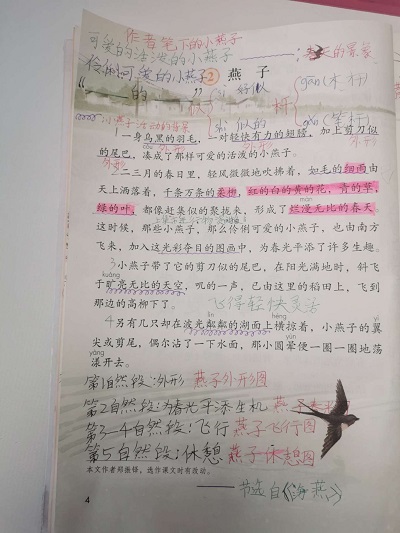 作者笔下的小燕子
可爱的活泼的小燕子
春天的景象
伶俐可爱的小燕子
2 燕子
gān(木杆)
的
似 好似
杆
shì 似的
gǎn(笔杆)
小燕子活动的背景
1一身乌黑的羽毛，一对轻快有力的翅膀，加上剪刀似
外形 外形 外形
的尾巴，凑成了那样可爱的活泼的小燕子。
外形
2二三月的春日里，轻风微微地吹拂着，如毛的细雨由
天上洒落着，千条万条的柔柳，红的白的黄的花，青的草，
màn
绿的叶，都像赶集似的聚拢来，形成了烂漫无比的春天。
这时候，那些小燕子，那么伶俐可爱的小燕子，也由南方
飞来，加入这光彩夺目的图画中，为春光平添了许多生趣。
3小燕子带了它的剪刀似的尾巴，在阳光满地时，斜飞
kuàng
于旷亮无比的天空，叽的一声，已由这里的稻田上，飞到
那边的高柳下了。
飞得轻快灵活
lín héng yì
4另有几只却在波光粼粼的湖面上横掠着，小燕子的翼
yùn
尖或剪尾，偶尔沾了一下水面，那小圆晕便一圈一圈地荡
yàng
漾开去。
第1自然段：外形 燕子外形图
第2自然段：为春光平添生机 燕子
第3-4自然段：飞行 燕子飞行图
第5自然段：休憩 燕子休憩图
本文作者郑振铎，选作课文时有改动。
4
——节选自《海燕》